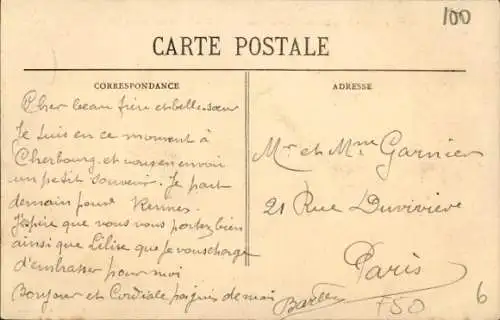 100
CARTE POSTALE
CORRESPONDANCE
ADRESSE
Cher beau frère et belle-sœur
Je suis en ce moment à
Cherbourg et vous en envoi
un petit souvenir. Je part
demain pour Rennes.
J'espère que vous vous portez bien
ainsi que Lilise que je vous charge
d'embrasser pour moi
Bonjour et Cordiale poignés de main
Mr et Mme Garnier
21 Rue Duvivière
Paris
6